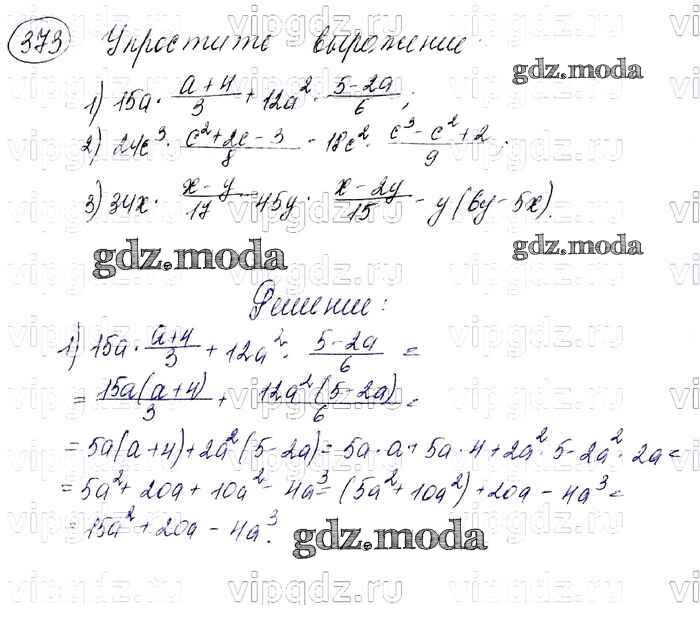 373 Упростите выражение:
1) 15a · (a+4)/3 + 12a² · (5-2a)/6;
2) 24c³ · (c²+2c-3)/8 - 18c² · (c³-c²+2)/9;
3) 34x · (x-y)/17 - 45y · (x-2y)/15 - y(6y-5x).
gdz.moda
gdz.moda
gdz.moda
Решение:
1) 15a · (a+4)/3 + 12a² · (5-2a)/6 =
= 15a(a+4)/3 + 12a²(5-2a)/6 =
= 5a(a+4)+2a²(5-2a) = 5a·a+5a·4+2a²·5-2a²·2a =
= 5a²+20a+10a²-4a³ = (5a²+10a²)+20a-4a³ =
= 15a²+20a-4a³.
gdz.moda
gdz.moda
vipgdz.ru